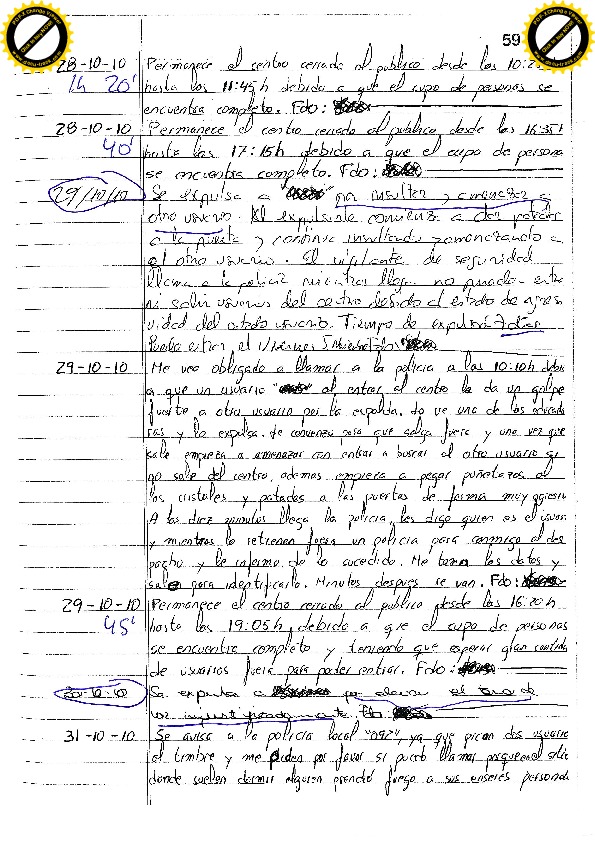 59
28-10-10 Permanece el centro cerrado al público desde las 10:2
1h 20' hasta las 11:45h debido a que el cupo de personas se
encuentra completo. Fdo:
28-10-10 Permanece el centro cerrado al público desde las 16:35h
40' hasta las 17:15h debido a que el cupo de persona
se encuentra completo. Fdo:
29/10/10 Se expulsa a por insultar y amenazar a
otro usuario. El expulsado comienza a dar patadas
a la puerta y continua insultando y amenazando a
el otro usuario. El vigilante de seguridad
llama a la policia mientras llega no pueden entrar
ni salir usuarios del centro debido al estado de agres
vidad del citado usuario. Tiempo de expulsión 7 días
Puede entrar el viernes 5
29-10-10 Me veo obligado a llamar a la policía a las 10:10h debi
a que un usuario al entrar al centro le da un golpe
fuerte a otro usuario por la espalda. Lo ve una de las educado
ras y lo expulsa. Le convenzo para que salga fuera y una vez que
sale empieza a amenazar con entrar a buscar al otro usuario si
no sale del centro, ademas empieza a pegar puñetazos a
los cristales y patadas a las puertas de forma muy agresiv
A los diez minutos llega la policía, les digo quien es el usuar
y mientras lo retienen fuera un policía pasa conmigo al des
pacho y le informo de lo sucedido. Me toman los datos y
sale para identificarlo. Minutos después se van. Fdo:
29-10-10 Permanece el centro cerrado al público desde las 16:20h
45' hasta las 19:05h debido a que el cupo de personas
se encuentra completo y teniendo que esperar gran cantida
de usuarios fuera para poder entrar. Fdo:
Se expulsa a por elevar el tono de
voz injustificadamente. Fdo
31-10-10 Se avisa a la policía local "092", ya que pican dos usuario
al timbre y me piden por favor si puedo llamar porque en el sitio
donde suelen dormir alguien prendió fuego a sus enseres personal